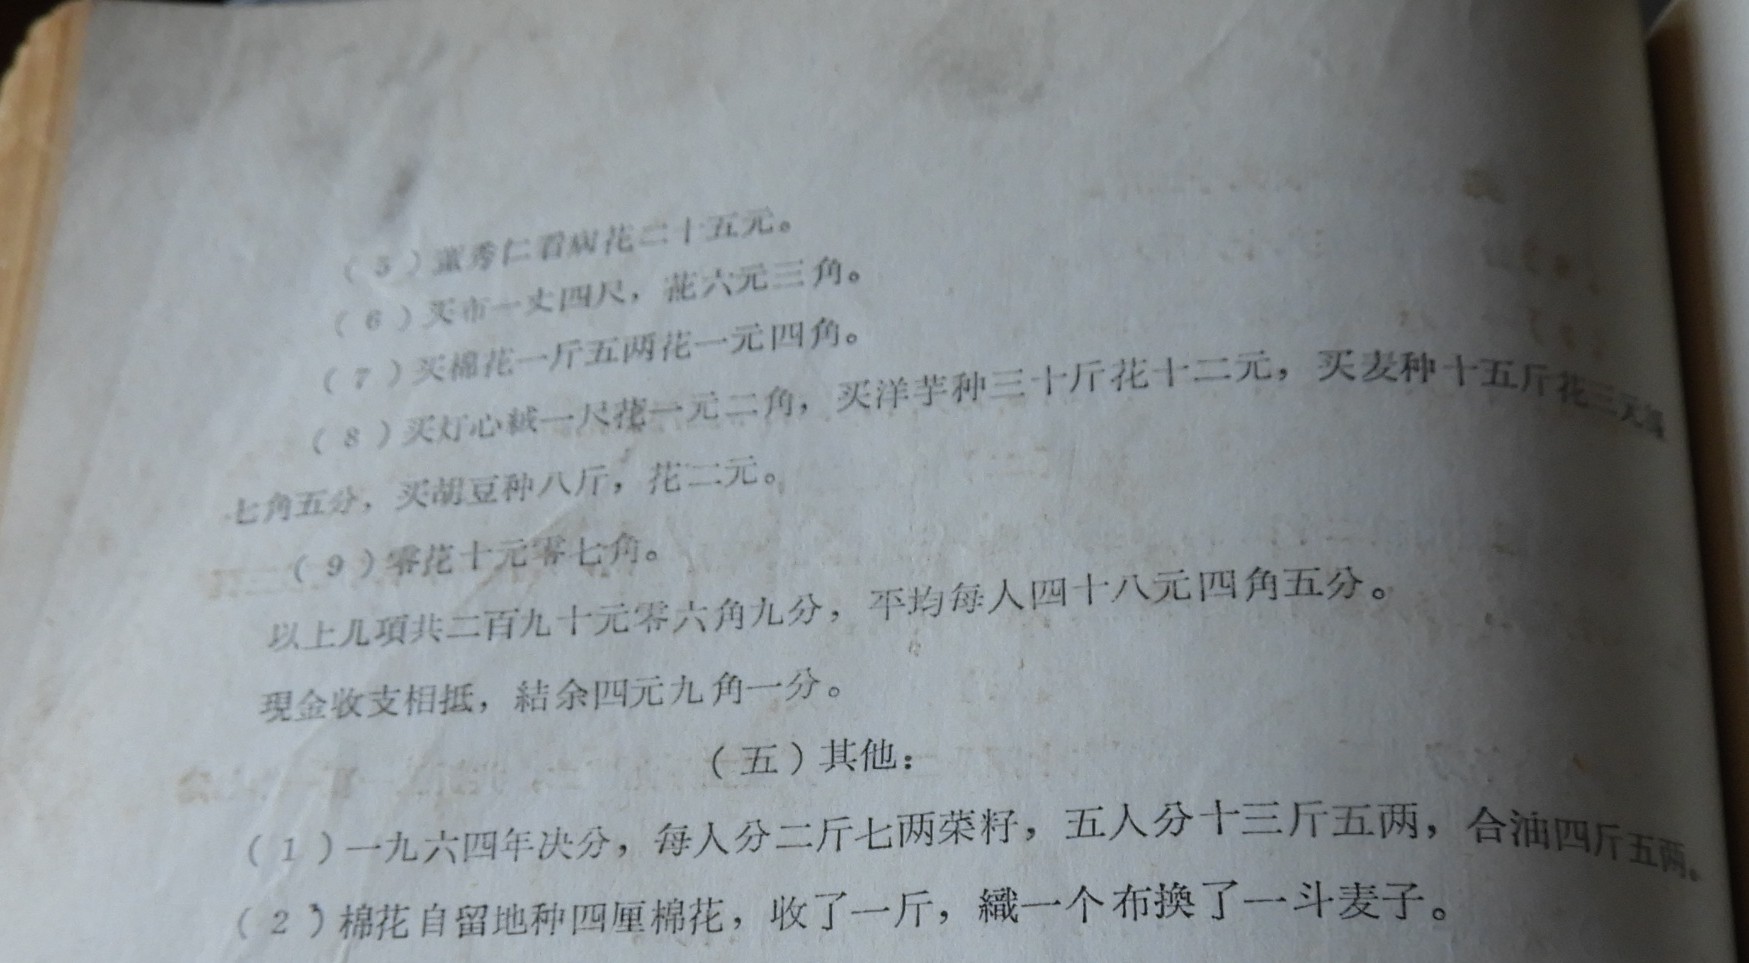 （5）董秀仁看病花二十五元。
（6）买布一丈四尺，花六元三角。
（7）买棉花一斤五两花一元四角。
（8）买灯心絨一尺花一元二角，买洋芋种三十斤花十二元，买麦种十五斤花三元
七角五分，买胡豆种八斤，花二元。
（9）零花十元零七角。
以上几項共二百九十元零六角九分，平均每人四十八元四角五分。
現金收支相抵，結余四元九角一分。
（五）其他：
（1）一九六四年决分，每人分二斤七两菜籽，五人分十三斤五两，合油四斤五两。
（2）棉花自留地种四厘棉花，收了一斤，織一个布換了一斗麦子。